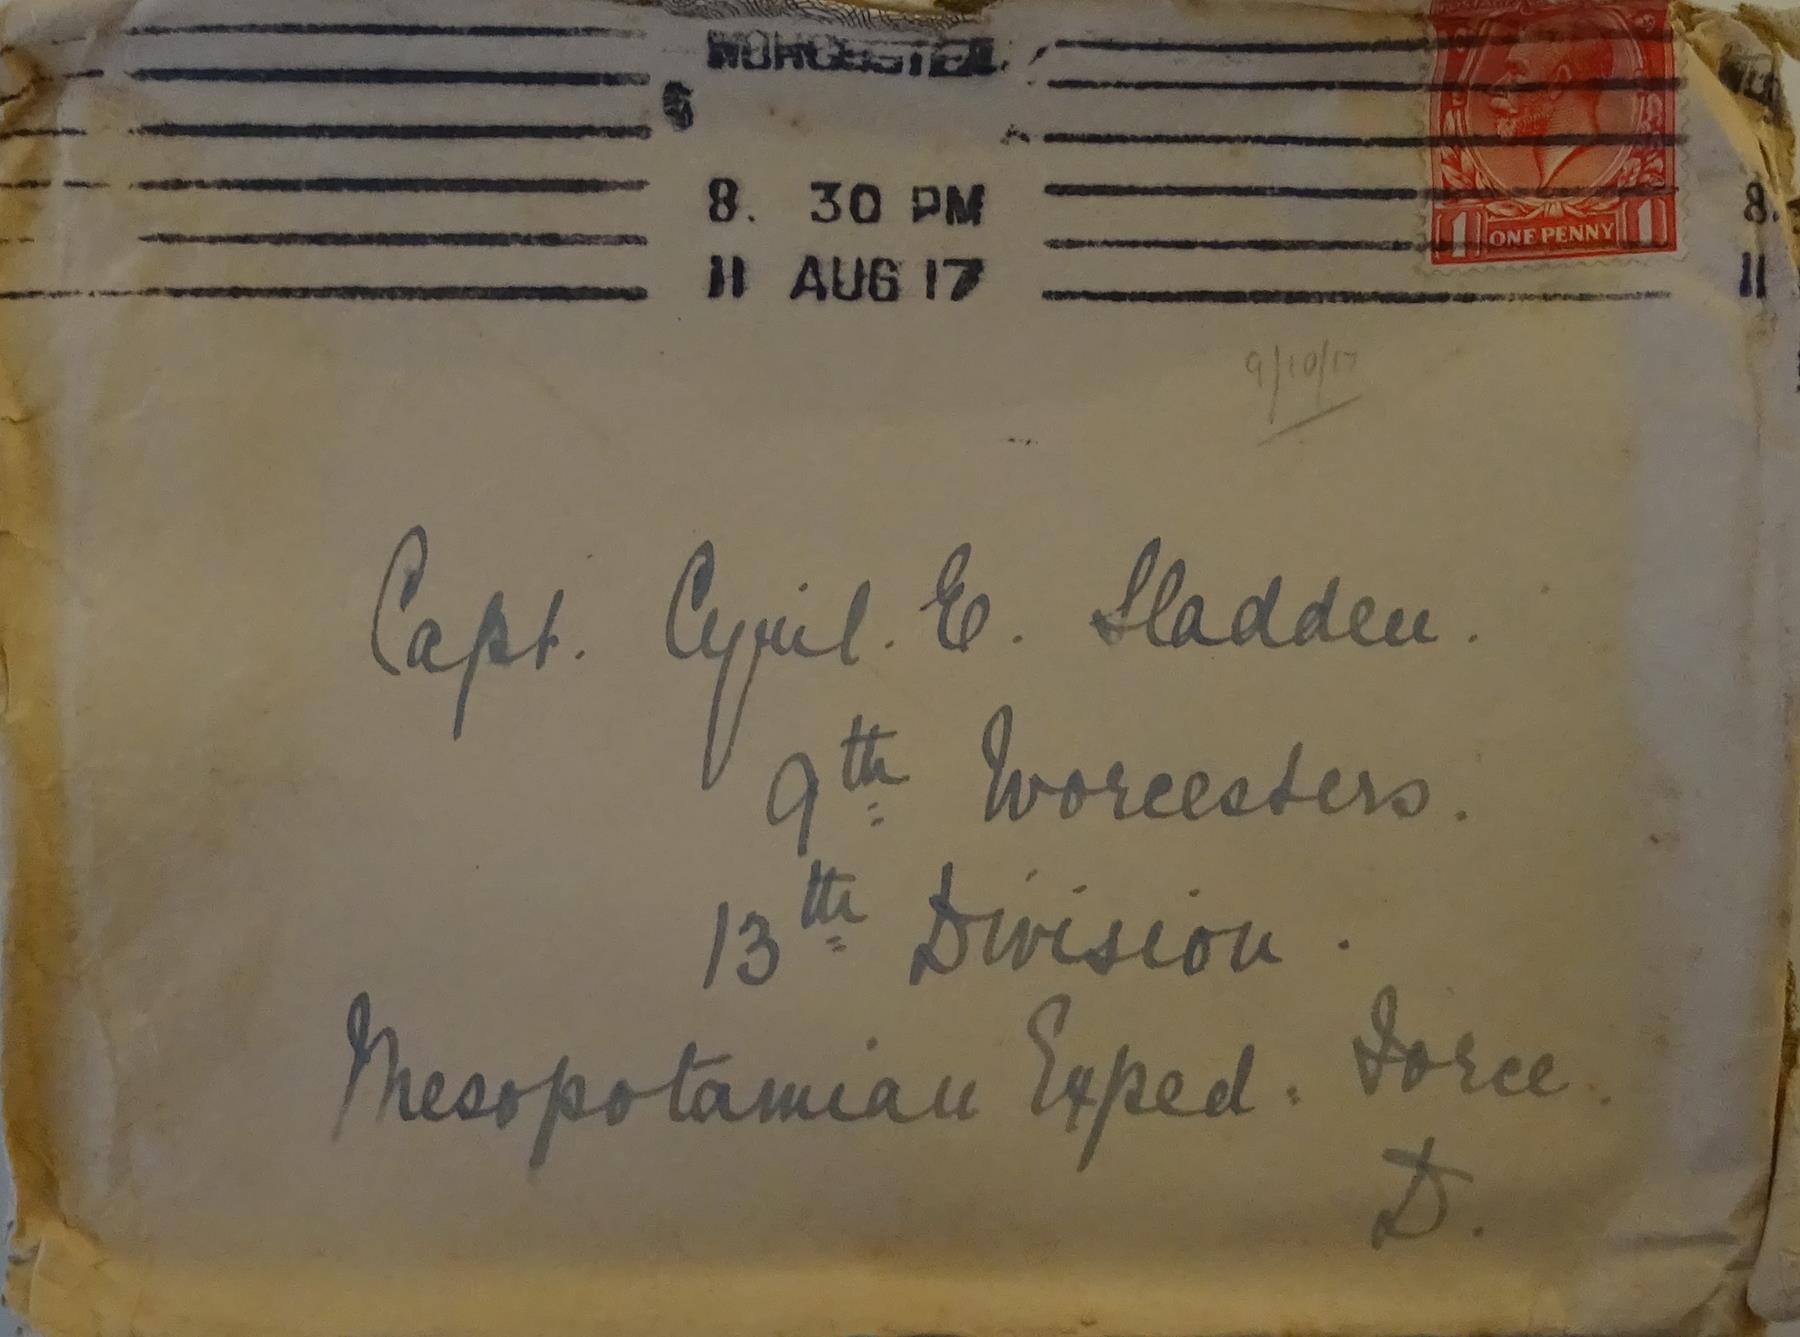 WORCESTER
5
8. 30 PM
11 AUG 17
1 ONE PENNY 1
8.
11
9/10/17
Capt. Cyril. E. Sladden.
9th Worcesters.
13th Division.
Mesopotamian Exped. Force.
D.